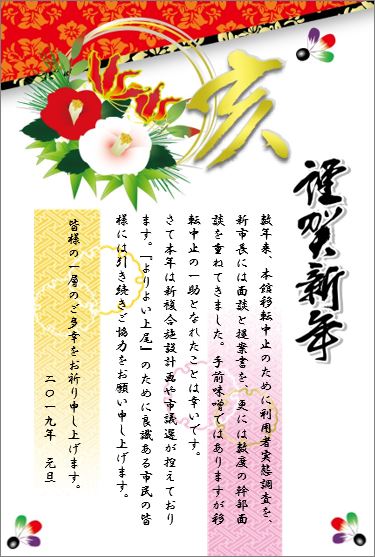 亥
謹賀新年
数年来、本館移転中止のために利用者実態調査を、
新市長には面談と提案書を、更には数度の幹部面
談を重ねてきました。手前味噌ではありますが移
転中止の一助となれたことは幸いです。
さて本年は新複合施設計画や市議選が控えており
ます。「よりよい上尾」のために良識ある市民の皆
様には引き続きご協力をお願い申し上げます。
皆様の一層のご多幸をお祈り申し上げます。
二〇一九年 元旦